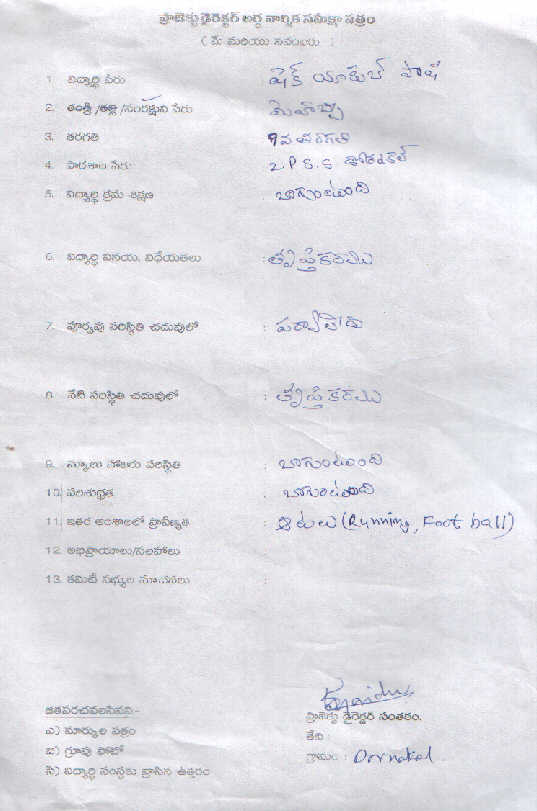 ప్రాజెక్టు డైరెక్టర్ అర్ధ వార్షిక సమీక్షా పత్రం
( మే మరియు నవంబరు )
1. విద్యార్థి పేరు షేక్ యాకుబ్ పాషా
2. తండ్రి /తల్లి /సంరక్షకుని పేరు
3. తరగతి 9వ తరగతి
4. పాఠశాల పేరు Z.P.S.S డోర్నకల్
5. విద్యార్థి క్రమ శిక్షణ : బాగుంటుంది
6. విద్యార్థి వినయ, విధేయతలు : తృప్తికరము
7. పూర్వపు పరిస్థితి చదువులో : పర్వాలేదు
8. నేటి సంస్థితి చదువులో : తృప్తికరము
9. స్కూలు హాజరు పరిస్థితి : బాగుంటుంది
10. పరిశుభ్రత : బాగుంటుంది
11. ఇతర అంశాలలో ప్రావీణ్యత : ఆటలు (Running, Foot ball)
12. అభిప్రాయాలు/సలహాలు :
13. కమిటీ సభ్యుల సూచనలు :
జతపరచవలసినవి:-
ప్రాజెక్టు డైరెక్టర్ సంతకం.
ఎ) మార్కుల పత్రం
తేది :
బి) గ్రూపు ఫోటో
గ్రామం : Dornakal
సి) విద్యార్థి సంస్థకు వ్రాసిన ఉత్తరం